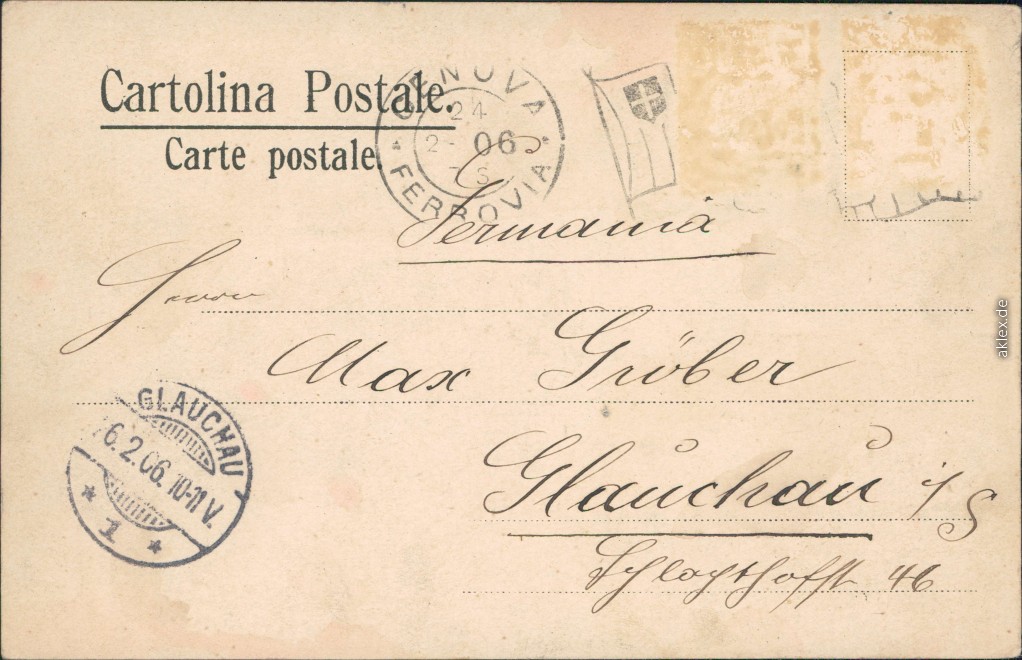 Cartolina Postale.
Carte postale
GENOVA
24
2- 06
FERROVIA
Germania
Herrn
Max Gröber
Glauchau i/S
Schlachthofstr 46
GLAUCHAU
6.2.06. 10-11 V.
* 1 *
aklex.de